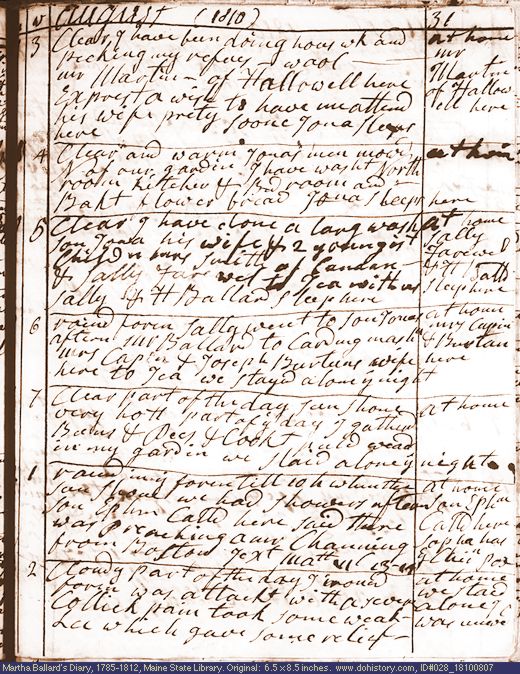 August (1810) 31
3 Clear, I have been doing hous wk and at home
pecking my refuse wool mr
mr Martin - of Hallowell here Martin
Exprest a wish to have me attend of Hallow
his wife pretty soone Jona sleeps ell here
here
4 Clear and warm Jonas men at home
at our garden I have washt North
room kitchen & Bed room and
Bakt flower bread Jona sleeps here
5 Clear, I have done a larg wash at home
son Jona his wife & 2 youngest Sally
Children mrs Smith Farewel
& Sally Farewel of Canaan & H Balld
Tea with us sleep here
Sally & H Ballard sleep here
6 raind foren Sally went to son Jonas at home
aftern mr Ballard to Carding mash mrs Capin
mrs Capin & Joseph Burtuns wife & Burtun
here to Tea we stayd alone y night here
7 Clear part of the day sun shone at home
very hott part of y day I gatherd
Beens & Pees & Cookt
in my garden we staid alone y night
1 raind foren till 10 h when the at home
sun shone we had showers aftern son Ephm
son Ephm Calld here said there Calld here
was Preaching a mr Channing
from Boston Text Mathw
2 Cloudy part of the day I at home
was attackt with a severe we staid
Collick pain took some weak alone I
Lee which gave some relief was unwell
Martha Ballard's Diary, 1785-1812, Maine State Library. Original: 6.5 x 8.5 inches. www.dohistory.com, ID#028_18100807